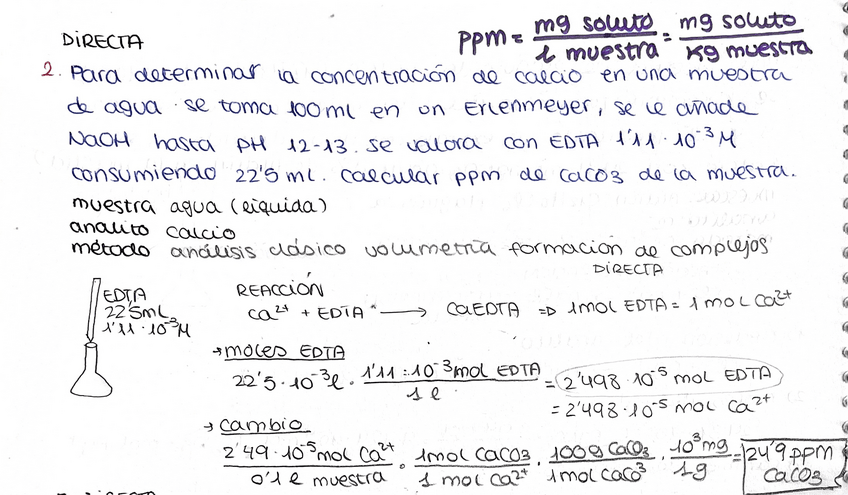 DIRECTA
ppm = mg soluto / l muestra = mg soluto / Kg muestra
2. Para determinar la concentración de calcio en una muestra
de agua se toma 100ml en un Erlenmeyer, se le añade
NaOH hasta pH 12-13. se valora con EDTA 1'11·10⁻³M
consumiendo 22'5 ml. Calcular ppm de CaCO3 de la muestra.
muestra agua (líquida)
analito calcio
método análisis clásico volumetría formación de complejos
DIRECTA
EDTA
22'5mL
1'11·10⁻³M
REACCIÓN
Ca²⁺ + EDTA⁻ → CaEDTA ⇒ 1mol EDTA = 1mol Ca²⁺
→ moles EDTA
22'5·10⁻³l · 1'11·10⁻³mol EDTA / 1 l = 2'498·10⁻⁵ mol EDTA
= 2'498·10⁻⁵ mol Ca²⁺
→ cambio
2'49·10⁻⁵mol Ca²⁺ / 0'1 l muestra · 1mol CaCO3 / 1 mol Ca²⁺ · 100g CaCO3 / 1mol CaCO³ · 10³mg / 1g = 24'9 ppm CaCO3